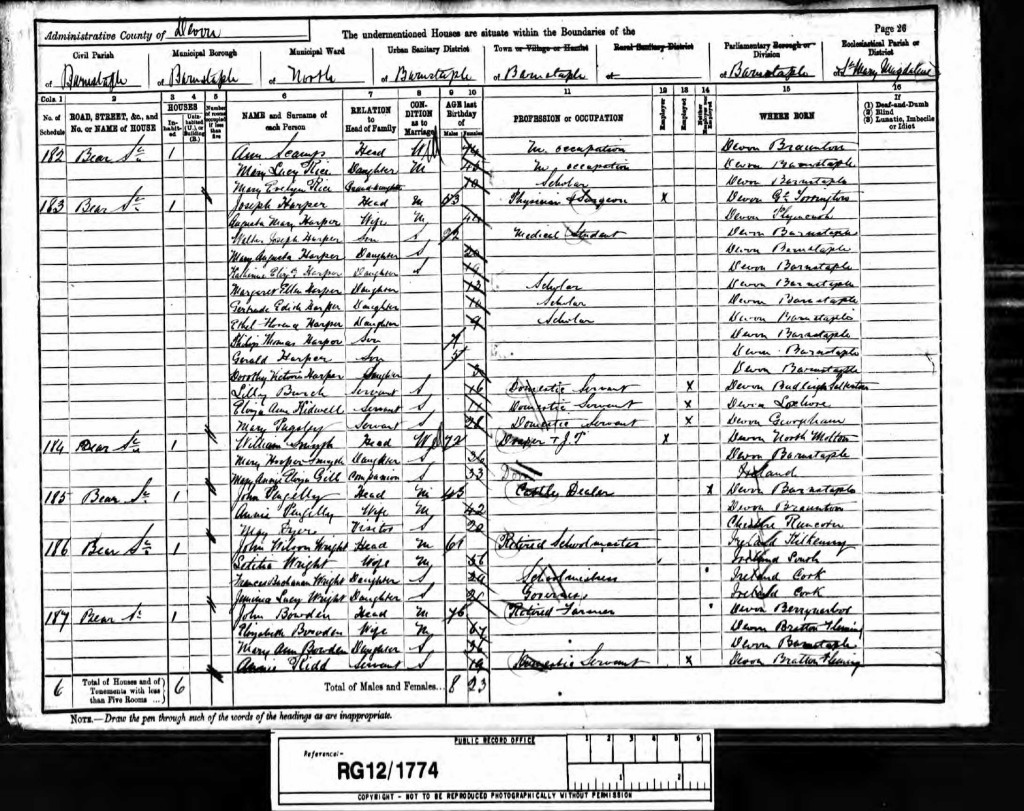 Administrative County of Devon The undermentioned Houses are situate within the Boundaries of the Page 26
Civil Parish Municipal Borough Municipal Ward Urban Sanitary District Town or Village or Hamlet Rural Sanitary District Parliamentary Borough or Division Ecclesiastical Parish or District
of Barnstaple of Barnstaple of North of Barnstaple of Barnstaple of of Barnstaple of St Mary Magdalene
Cols. 1 2 3 4 5 6 7 8 9 10 11 12 13 14 15 16
No. of Schedule ROAD, STREET, &c., and No. or NAME of HOUSE HOUSES Inhabited Uninhabited (U.), or Building (B.) Number of rooms occupied if less than five NAME and Surname of each Person RELATION to Head of Family CONDITION as to Marriage AGE last Birthday of Males Females PROFESSION or OCCUPATION Employer Employed Neither WHERE BORN If (1) Deaf-and-Dumb (2) Blind (3) Lunatic, Imbecile or Idiot
182 Bear St 1 Ann Head Devon Braunton
Mary Lucy Rice Daughter M occupation Devon Barnstaple
Mary Evelyn Rice Granddaughter 10 Scholar Devon Barnstaple
183 Bear St 1 Joseph Harper Head M 53 Physician & Surgeon X Devon Gt Torrington
Augusta Mary Harper Wife M Devon Plymouth
Walter Joseph Harper Son S 22 Medical Student Devon Barnstaple
Mary Augusta Harper Daughter S 20 Devon Barnstaple
Harper Daughter S 19 Devon Barnstaple
Margaret Ellen Harper Daughter 13 Scholar Devon Barnstaple
Gertrude Edith Harper Daughter Scholar Devon Barnstaple
Ethel Florence Harper Daughter 9 Scholar Devon Barnstaple
Philip Thomas Harper Son 7 Devon Barnstaple
Gerald Harper Son 5 Devon Barnstaple
Dorothy Victoria Harper Daughter Devon Barnstaple
Lilly Burch Servant S 16 Domestic Servant X Devon Budleigh Salterton
Eliza Ann Kidwell Servant S Domestic Servant X Devon Loxhore
Mary Pugsley Servant S 28 Domestic Servant X Devon Georgeham
184 Bear St 1 William Smyth Head 72 Draper & J.P. X Devon North Molton
Mary Hooper Smyth Daughter S 36 Devon Barnstaple
Mary Annie Gill Companion S 33 Ireland
185 Bear St 1 John Pengelly Head M 43 Cattle Dealer X Devon Barnstaple
Annie Pengelly Wife M 42 Devon Braunton
Visitor S 20 Cheshire Runcorn
186 Bear St 1 John Wilson Wright Head M 61 Retired Schoolmaster Ireland Kilkenny
Letitia Wright Wife M 56 Ireland
Frances Buchanan Wright Daughter S Schoolmistress Ireland Cook
Jemima Lucy Wright Daughter S Governess Ireland Cook
187 Bear St 1 John Bowden Head M 75 Retired Farmer Devon Berrynarbor
Elizabeth Bowden Wife M 67 Devon Bratton Fleming
Mary Ann Bowden Daughter S 36 Devon Barnstaple
Annie Kidd Servant S 19 Domestic Servant X Devon Bratton Fleming
6 Total of Houses and of Tenements with less than Five Rooms ...} 6 Total of Males and Females... 8 23
NOTE.—Draw the pen through such of the words of the headings as are inappropriate.
PUBLIC RECORD OFFICE 1 2 3 4 5 6
Reference:-
RG12/1774 1 2
COPYRIGHT - NOT TO BE REPRODUCED PHOTOGRAPHICALLY WITHOUT PERMISSION